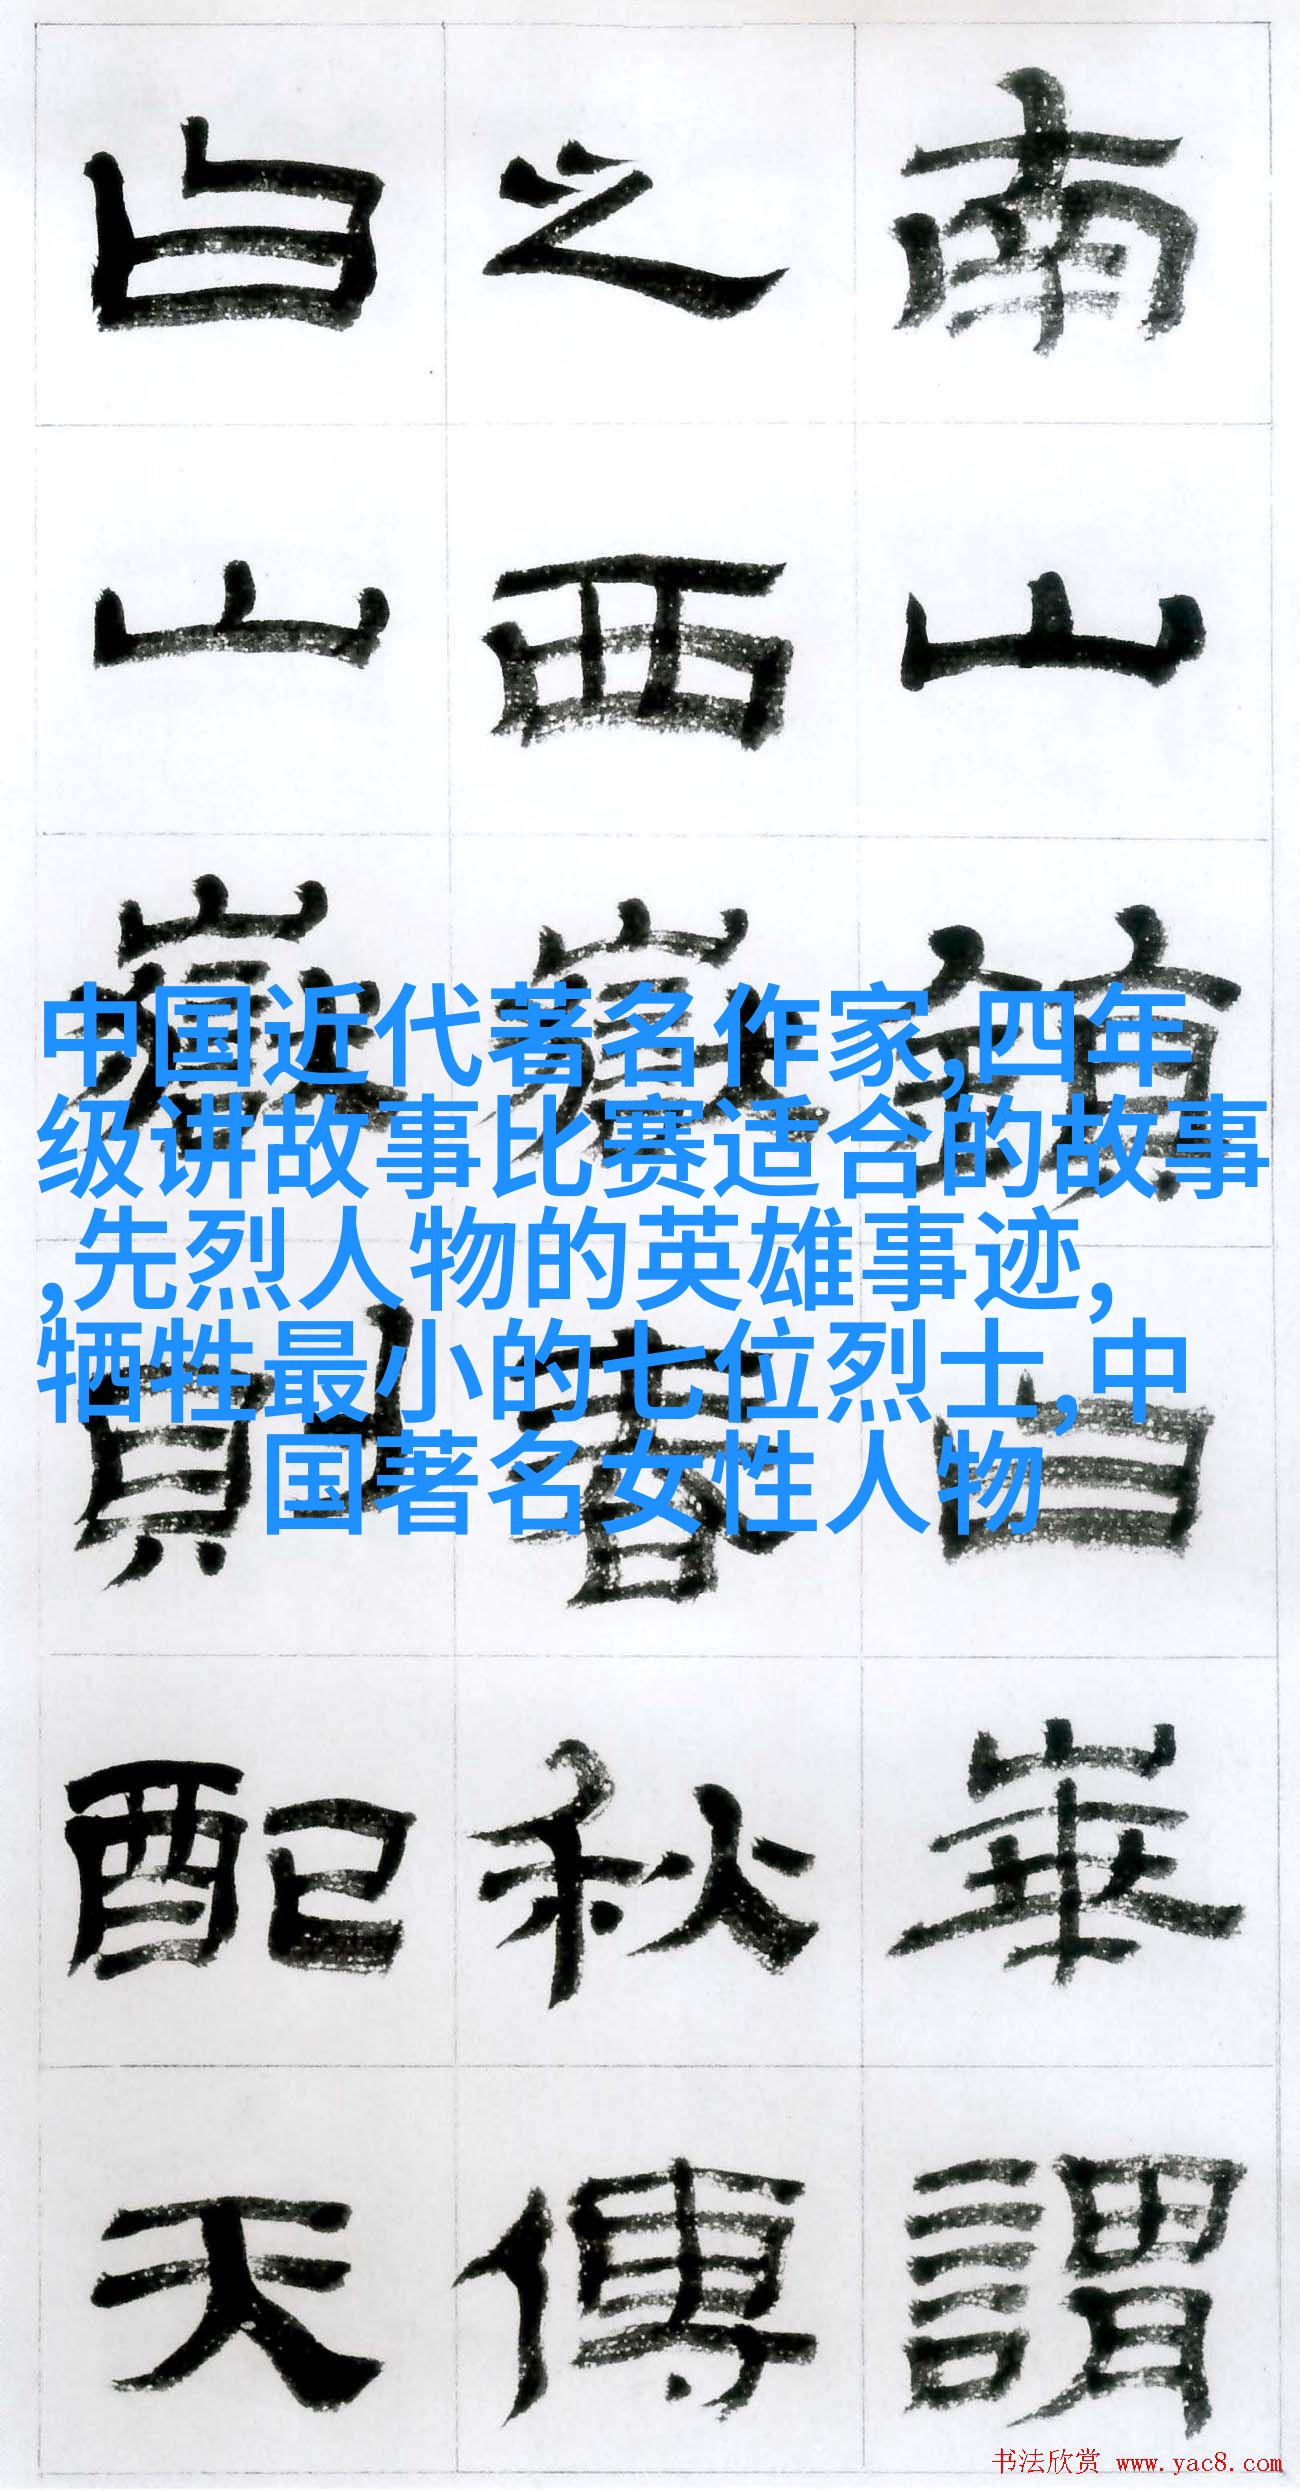 南山鎮曰華謂
之西嶽春秋傳
曰山嶽則配天
中国近代著名作家,四年
级讲故事比赛适合的故事
,先烈人物的英雄事迹,
牺牲最小的七位烈士,中
国著名女性人物
书法欣赏 www.yac8.com